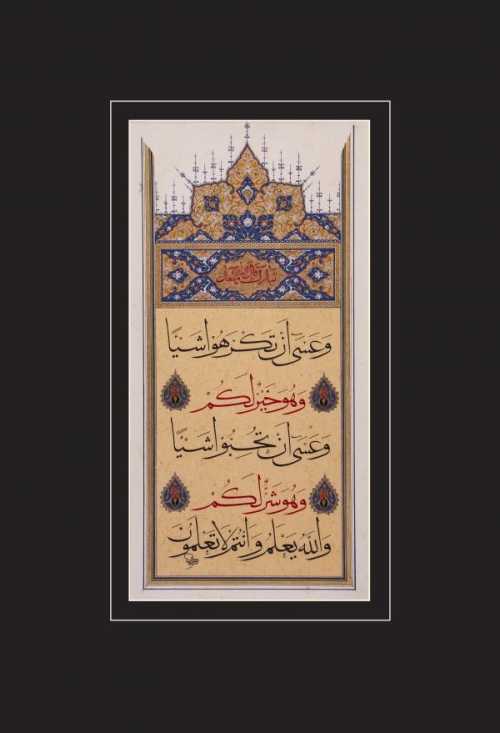 وَعَسَىٓ اَنْ تَكْرَهُوا شَيْئًا
وَهُوَ خَيْرٌ لَكُمْ
وَعَسَىٓ اَنْ تُحِبُّوا شَيْئًا
وَهُوَ شَرٌّ لَكُمْ
وَاللهُ يَعْلَمُ وَاَنْتُمْ لَا تَعْلَمُونَ